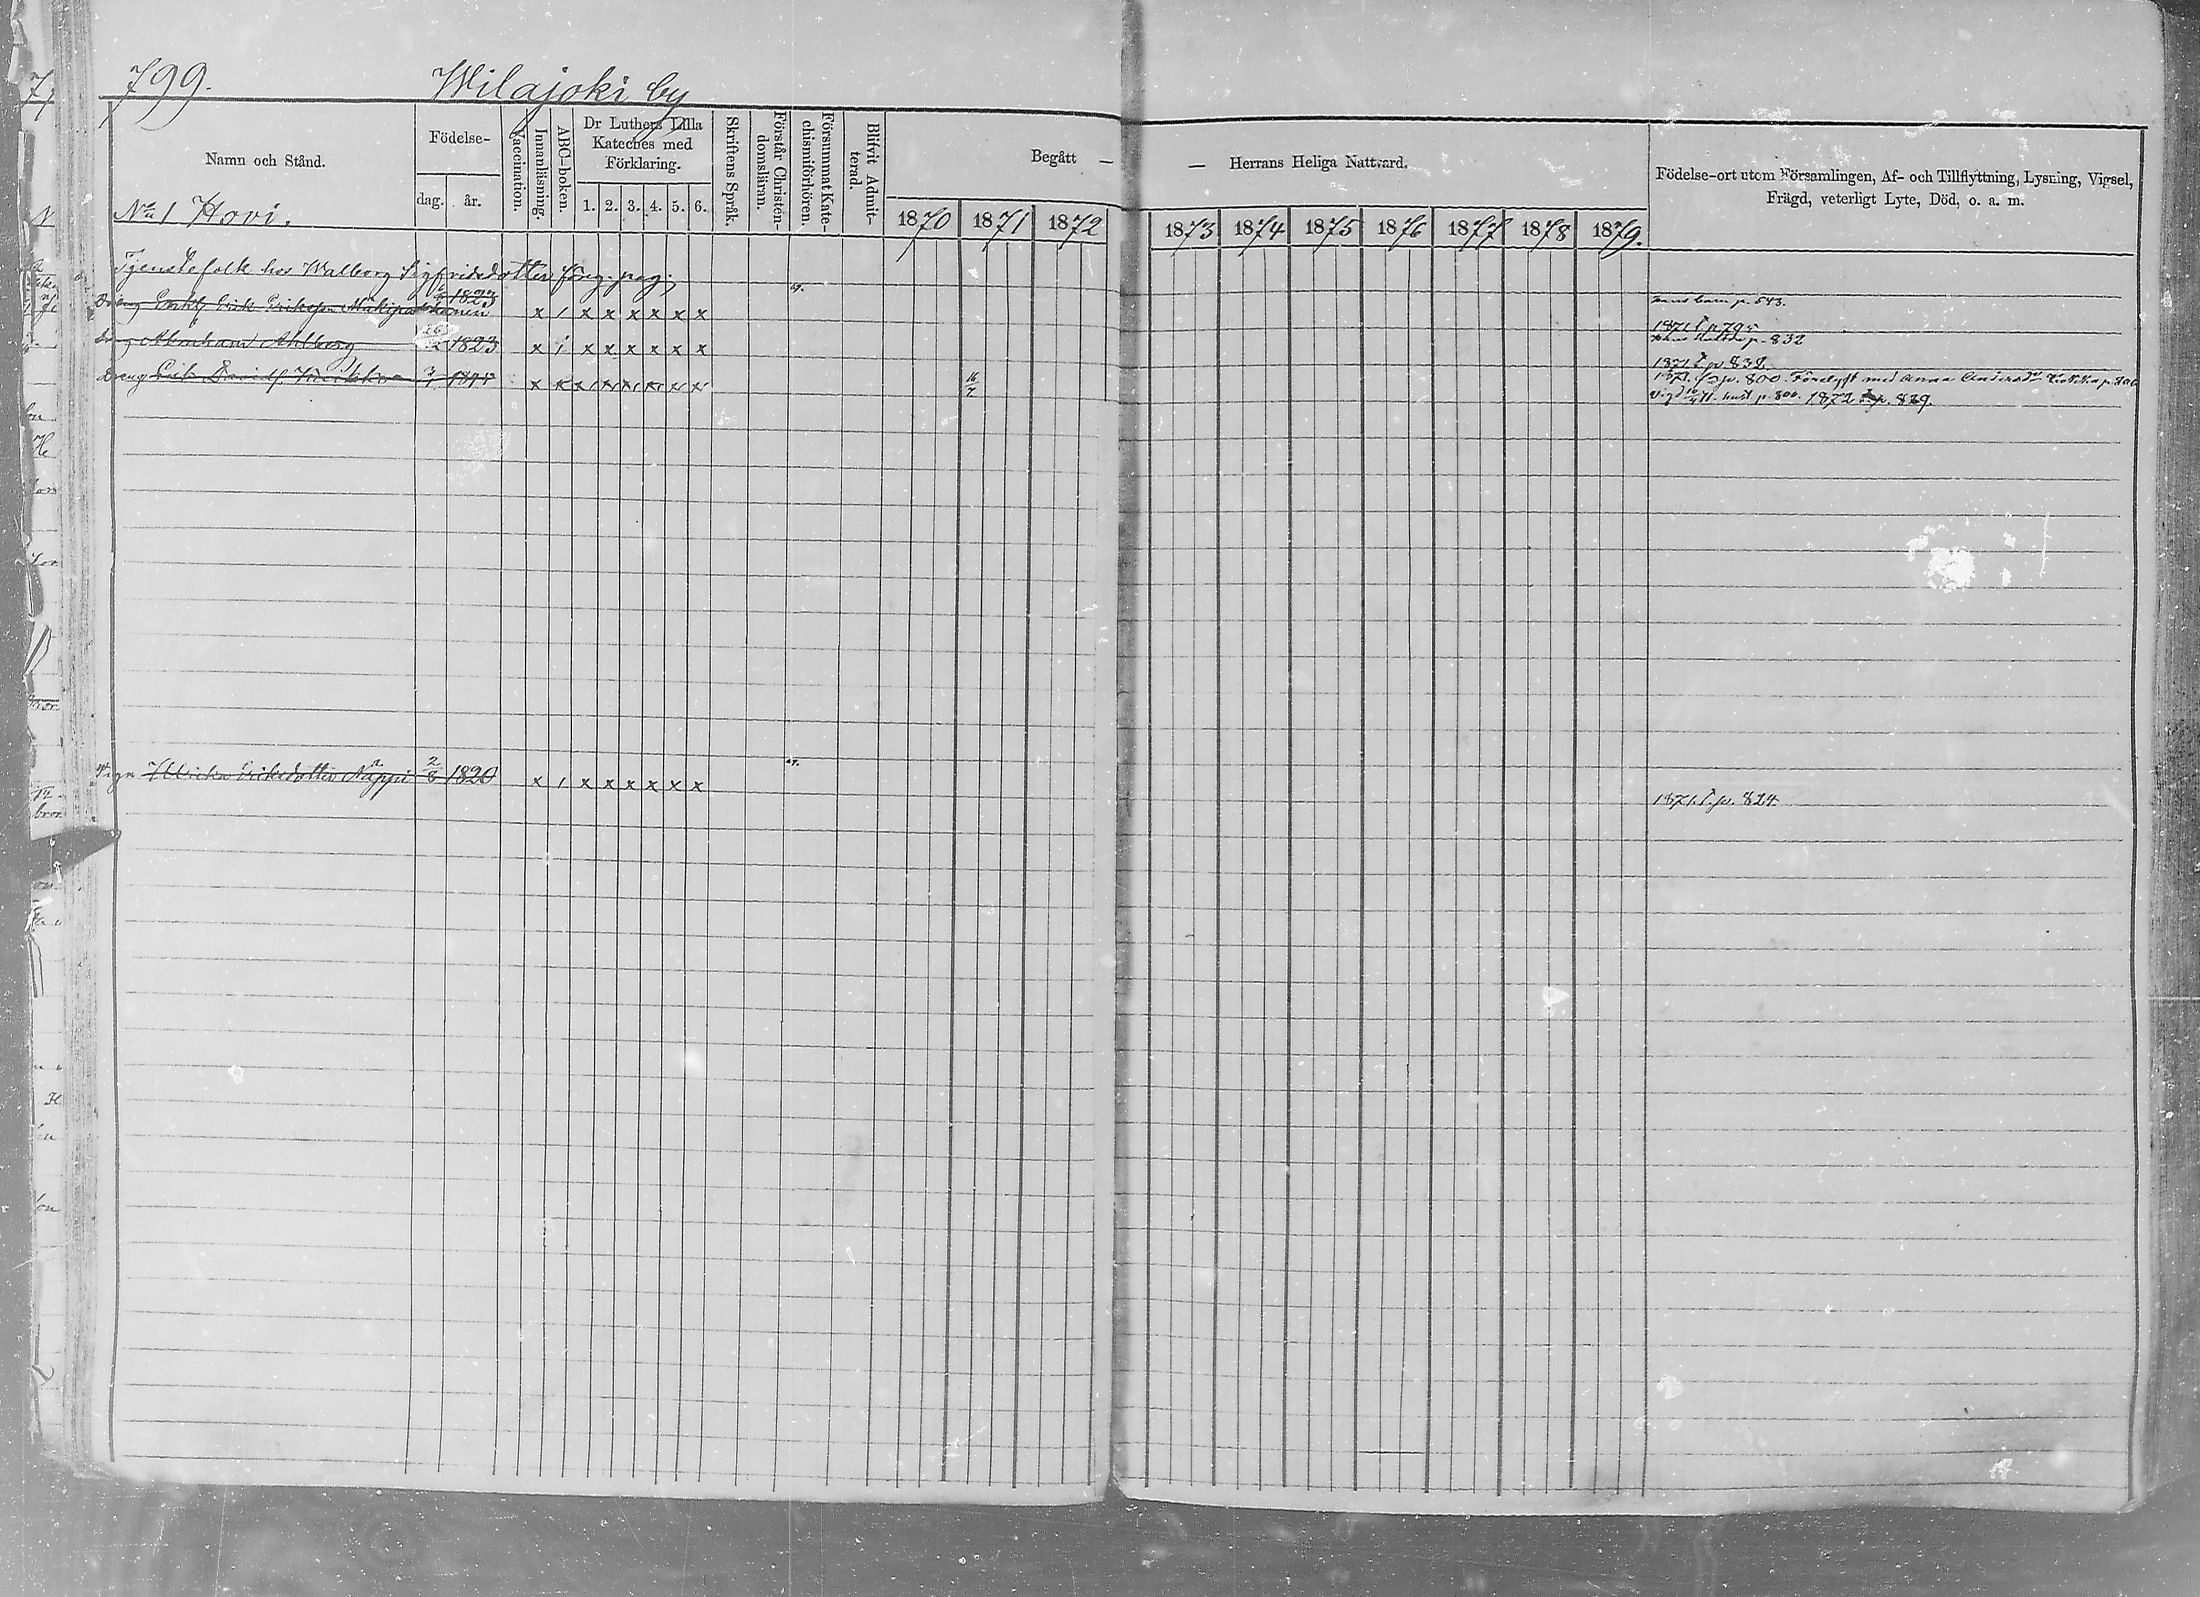 799. Wilajoki by
Namn och Stånd.
Födelse-
dag. år.
Vaccination.
Innanläsning.
ABC-boken.
Dr Luthers Lilla
Kateches med
Förklaring.
1. 2. 3. 4. 5. 6.
Skriftens Språk.
Förstår Christen-
domsläran.
Försummat Kate-
chismiförhören.
Blifvit Admit-
terad.
Begått — — Herrans Heliga Nattvard.
1870 1871 1872 1873 1874 1875 1876 1877 1878 1879.
Födelse-ort utom Församlingen, Af- och Tillflyttning, Lysning, Vigsel,
Frägd, veterligt Lyte, Död, o. a. m.
No 1 Hovi.
Tjenstefolk hos Walborg Sigfridsdotter föreg. pag.
Erik Eriksson 1823 x 1 x x x x x x
barn p. 543.
1871 p. 795
Abraham Ahlberg 1823 x 1 x x x x x x
p. 832
1871 p. 832
Dreng Davidss. x x x x x x x x 16/7
1871. p. 800. med Anna
p. 800. 1872 p. 829.
Pign Ulrika Eriksdotter Näppi 2/8 1820 x 1 x x x x x x
1871. p. 824